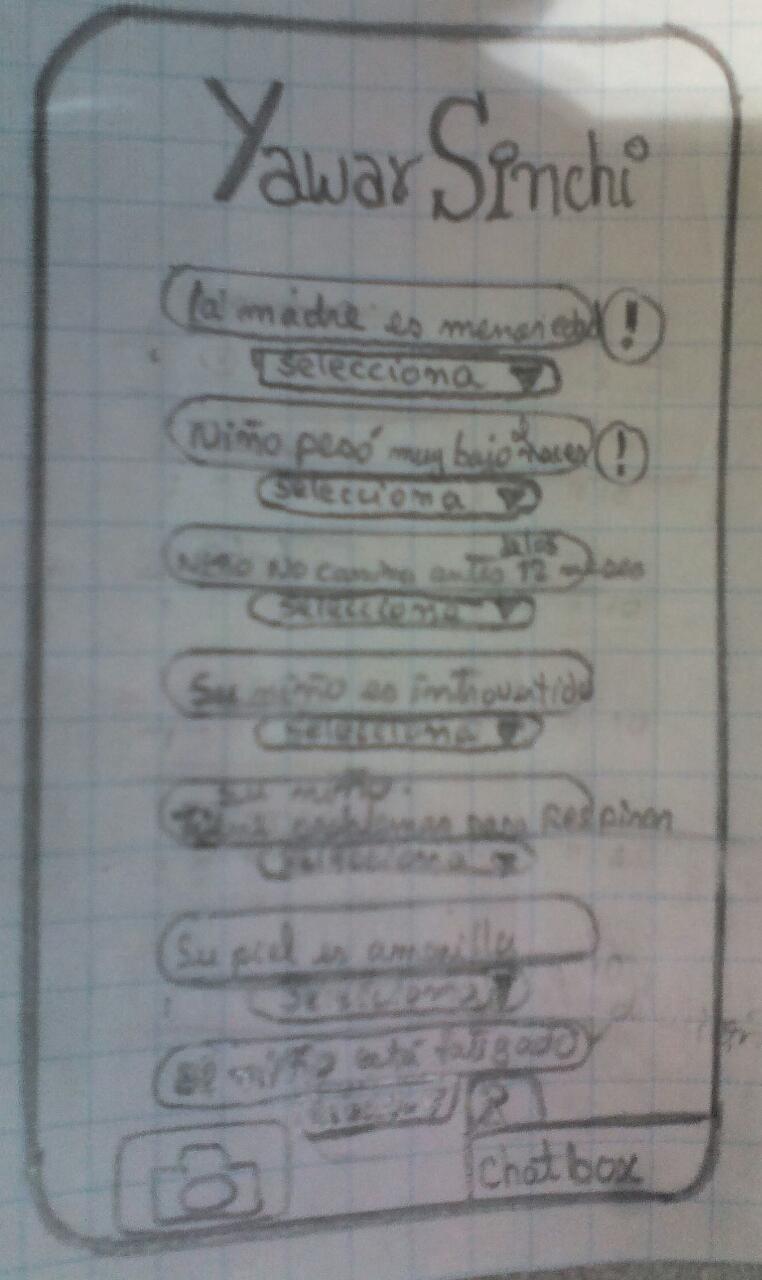 Yawar Sinchi
la madre es menor edad
!
selecciona
Niño pesó muy bajo
al nacer
!
selecciona
Niño No camina antes 12 meses
de los
selecciona
Su niño es introvertido
selecciona
Su niño
tiene problemas para Respirar
selecciona
Su piel es amarilla
selecciona
El niño está fatigado
chat box